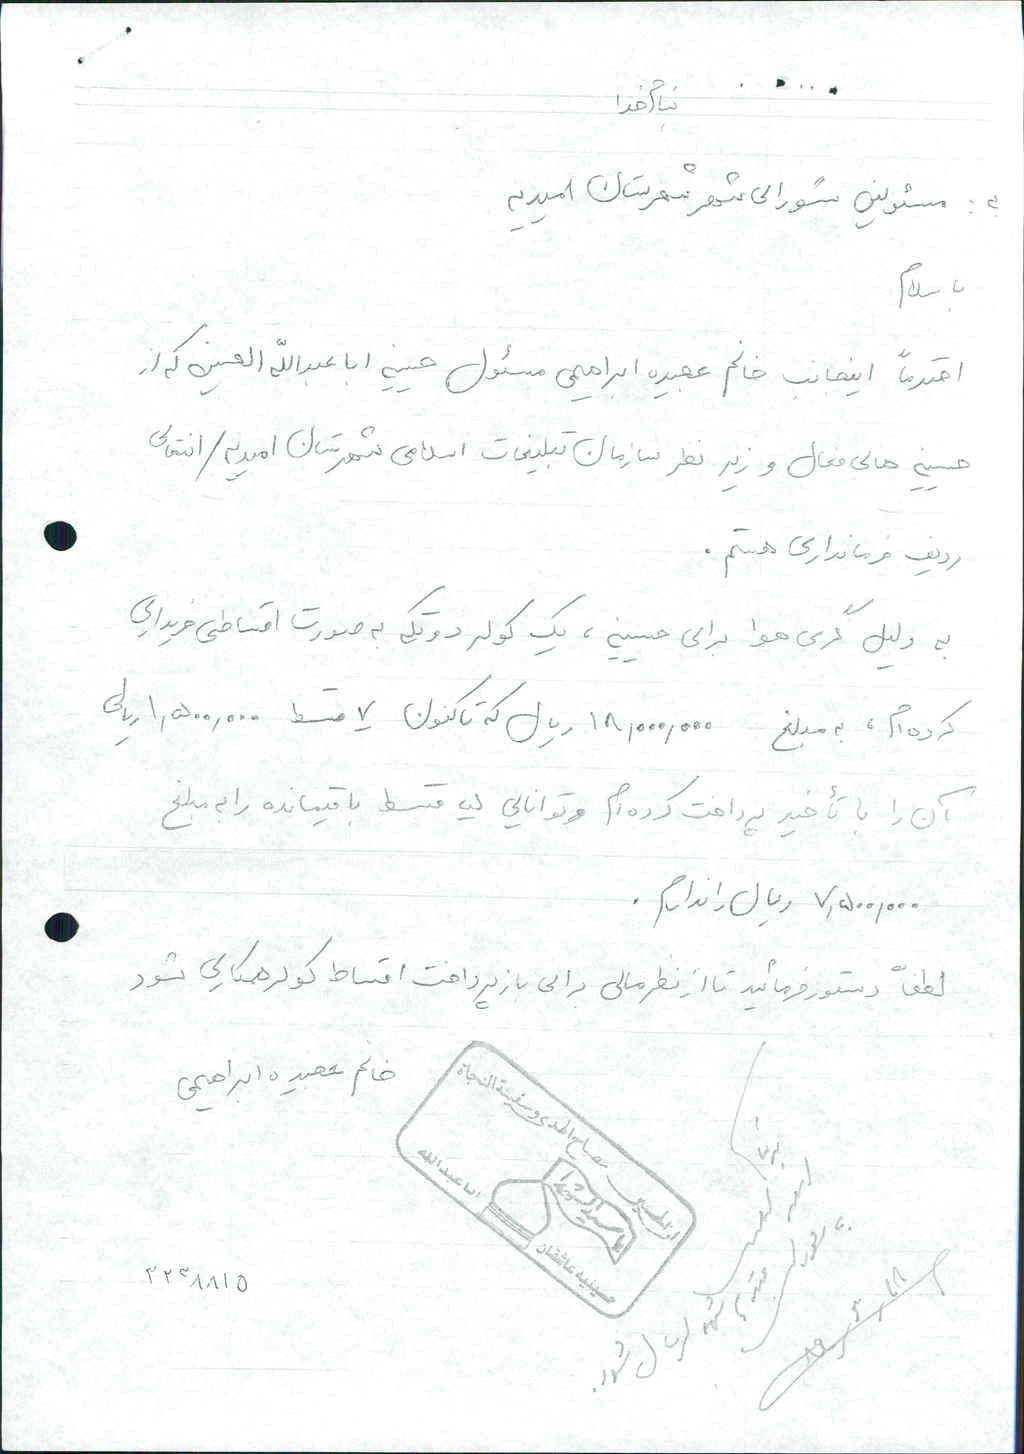 بنام خدا
به : مسئولین شورای شهر شهرستان امیدیه
با سلام
احتراماً اینجانب خانم عبیده ابراهیمی مسئول حسینیه اباعبدالله الحسین که از
حسینیه های فعال و زیر نظر سازمان تبلیغات اسلامی شهرستان امیدیه / انتهای
ردیف فرمانداری هستم .
به دلیل گرمی هوا برای حسینیه ، یک کولر دوتیکه به صورت اقساطی خریداری
کرده ام ، به مبلغ ۱۸,۰۰۰,۰۰۰ ریال که تاکنون ۷ قسط ۱,۵۰۰,۰۰۰ ریالی
آن را با تأخیر پرداخت کرده ام و توانایی قسط باقیمانده را به مبلغ
۷,۵۰۰,۰۰۰ ریال را ندارم .
لطفاً دستور فرمائید تا از نظر مالی برای باز پرداخت اقساط کولر همکاری شود
خانم عبیده ابراهیمی
ان الحسین مصباح الهدی و سفینة النجاة
یا سید الشهدا
حسینیه عاشقان اباعبدالله
ارسال شود.